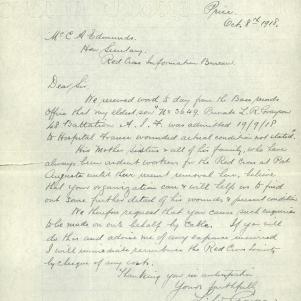 Price
Oct. 8th 1918.
Mr C. A. Edmunds.
Hon Secretary.
Red Cross Information Bureau
Dear Sir
We received word to day from the Base records
office that my eldest son "No 3649 Private L. R.
48 Battalion A. I. F. was admitted 19/9/18
to Hospital France wounded actual condition not stated".
His Mother Sisters & all of his family, who have
always been ardent workers for the Red Cross at Port
Augusta until their recent removal here, believe
that your organization can & will help us to find
out some further detail of his wounds & present condition
We therefore request that you cause such inquiries
to be made on our behalf by Cable. If you will
do this and advise me of any expense incurred
I will immediately reimburse the Red Cross Society
by cheque of any costs.
Thanking you in anticipation
Yours faithfully